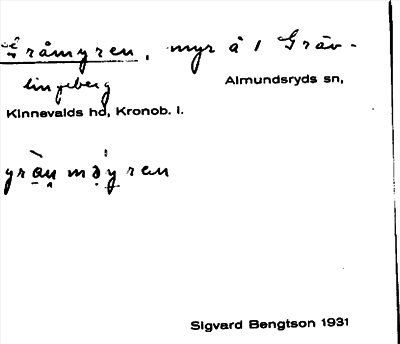 Gråmyren, myr å 1 Gräv-
lingeberg Almundsryds sn,
Kinnevalds hd, Kronob. l.
Sigvard Bengtson 1931